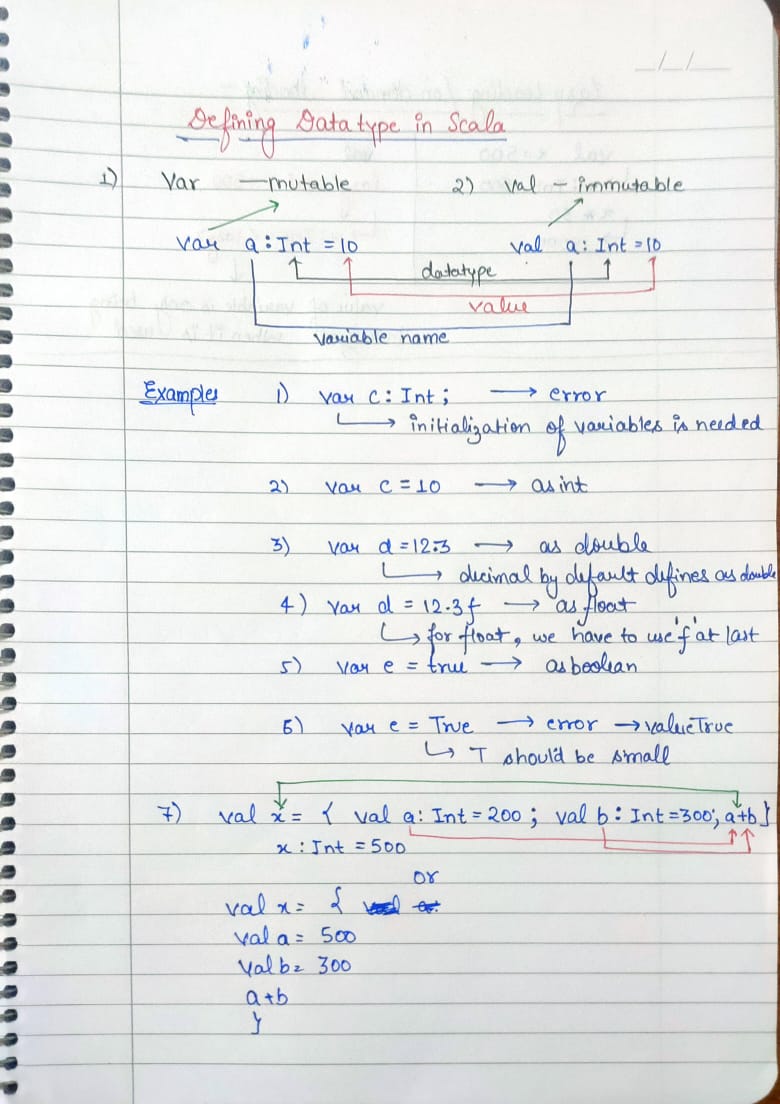 _/_/__
Defining Datatype in Scala
1) Var — mutable 2) val – immutable
var a : Int = 10 val a : Int = 10
datatype
value
variable name
Examples 1) var c : Int ; → error
→ initialization of variables is needed
2) var c = 10 → as int
3) var d = 12.3 → as double
→ decimal by default defines as double
4) var d = 12.3f → as float
→ for float, we have to use 'f' at last
5) var e = true → as boolean
6) var e = True → error → value True
→ T should be small
7) val x = { val a : Int = 200 ; val b : Int = 300; a+b }
x : Int = 500
or
val x = {
val a = 500
val b = 300
a+b
}